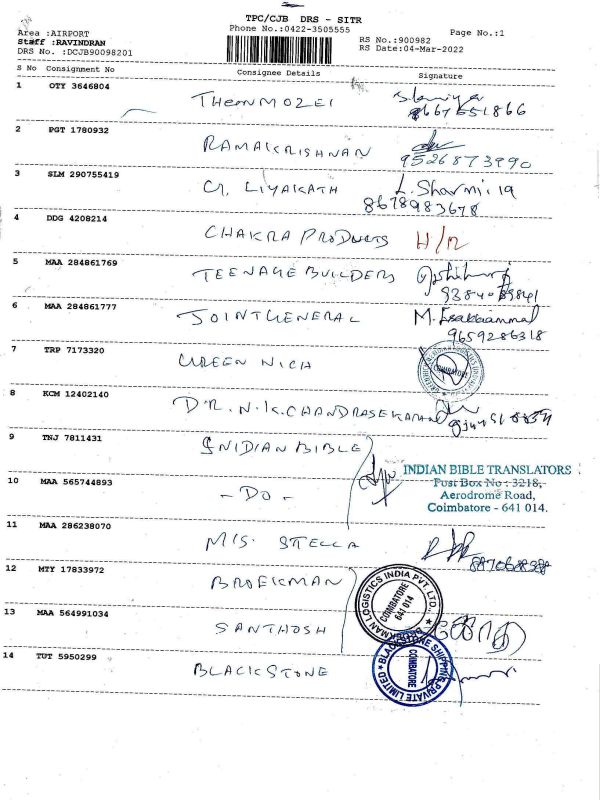 TPC/CJB DRS - SITR
Phone No.:0422-3505555
Page No.:1
Area :AIRPORT
Staff :RAVINDRAN
DRS No. :DCJB90098201
RS No.:900982
RS Date:04-Mar-2022
S No Consignment No Consignee Details Signature
1 OTY 3646804 THENMOZEI
8667651866
2 PGT 1780932 RAMAKRISHNAN
9526873990
3 SLM 290755419 G. LIYAKATH L. Sharmila
8678983678
4 DDG 4208214 CHAKRA PRODUCTS
5 MAA 284861769 TEENAGE BUILDERS
6 MAA 284861777 JOINT GENERAL M. Esakkiammal
9659286318
7 TRP 7173320 GREEN NICH
COIMBATORE
8 KCM 12402140 DR. N.K. CHANDRASEKARAN
9 TNJ 7811431 INIDIAN BIBLE
10 MAA 565744893 - DO -
INDIAN BIBLE TRANSLATORS
Post Box No : 3218,
Aerodrome Road,
Coimbatore - 641 014.
11 MAA 286238070 M/S. STELLA
12 MTY 17833972 BROEKMAN
BROEKMAN LOGISTICS INDIA PVT. LTD.,
COIMBATORE
641 014
13 MAA 564991034 SANTHOSH
14 TUT 5950299 BLACKSTONE
BLACKSTONE SHIPPING PRIVATE LIMITED
COIMBATORE